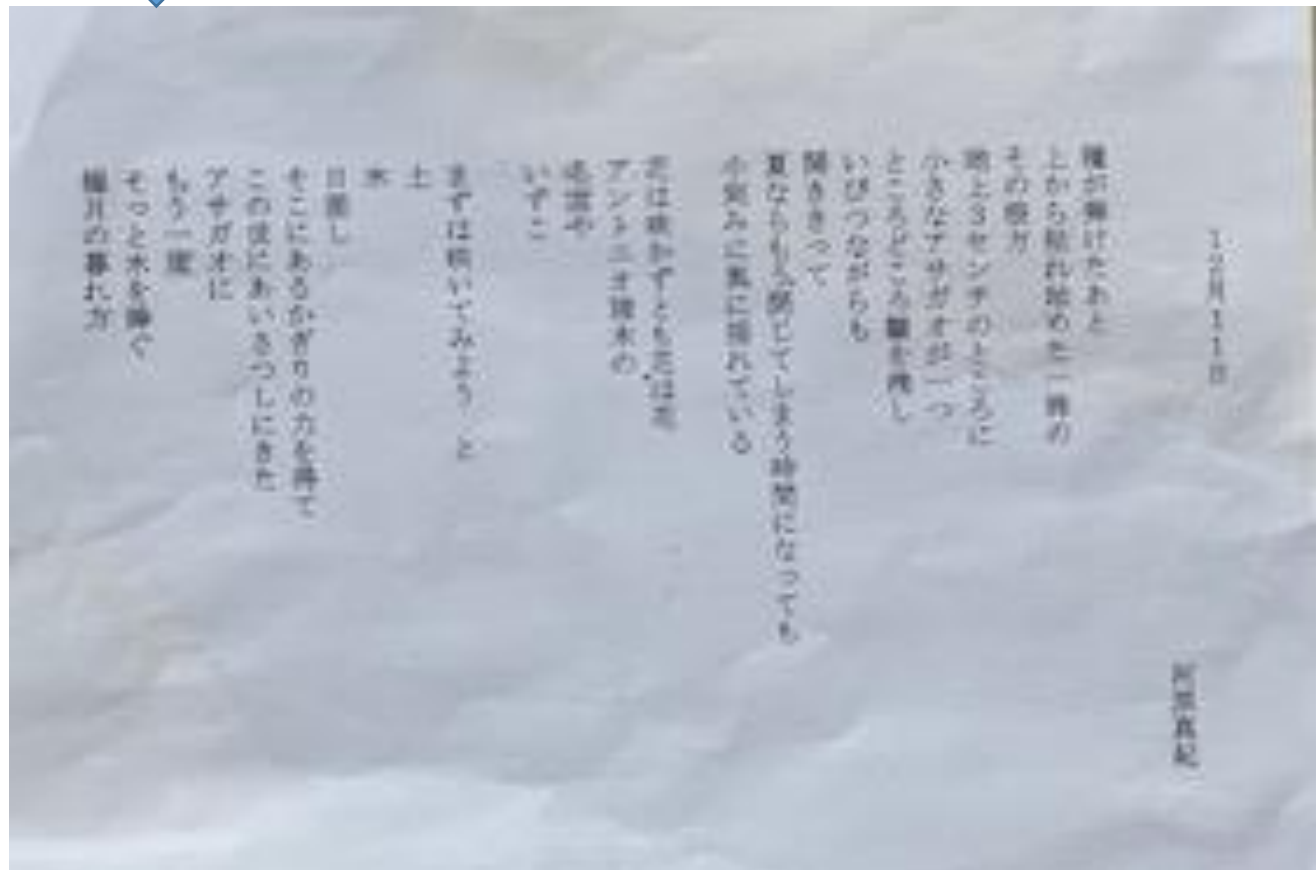 12月11日
河原真紀
種が弾けたあと
上から枯れ始めた一株の
その彼方
地上3センチのところに
小さなアサガオが一つ
ところどころ皺を残し
いびつながらも
開ききって
夏ならもう閉じてしまう時間になっても
小刻みに風に揺れている
花は咲かずとも花は花
アントニオ猪木の
名言や
いずこ
まずは咲いてみよう、と
土
水
日差し
そこにあるかぎりの力を得て
この世にあいさつしにきた
アサガオに
もう一度
そっと水を捧ぐ
極月の暮れ方